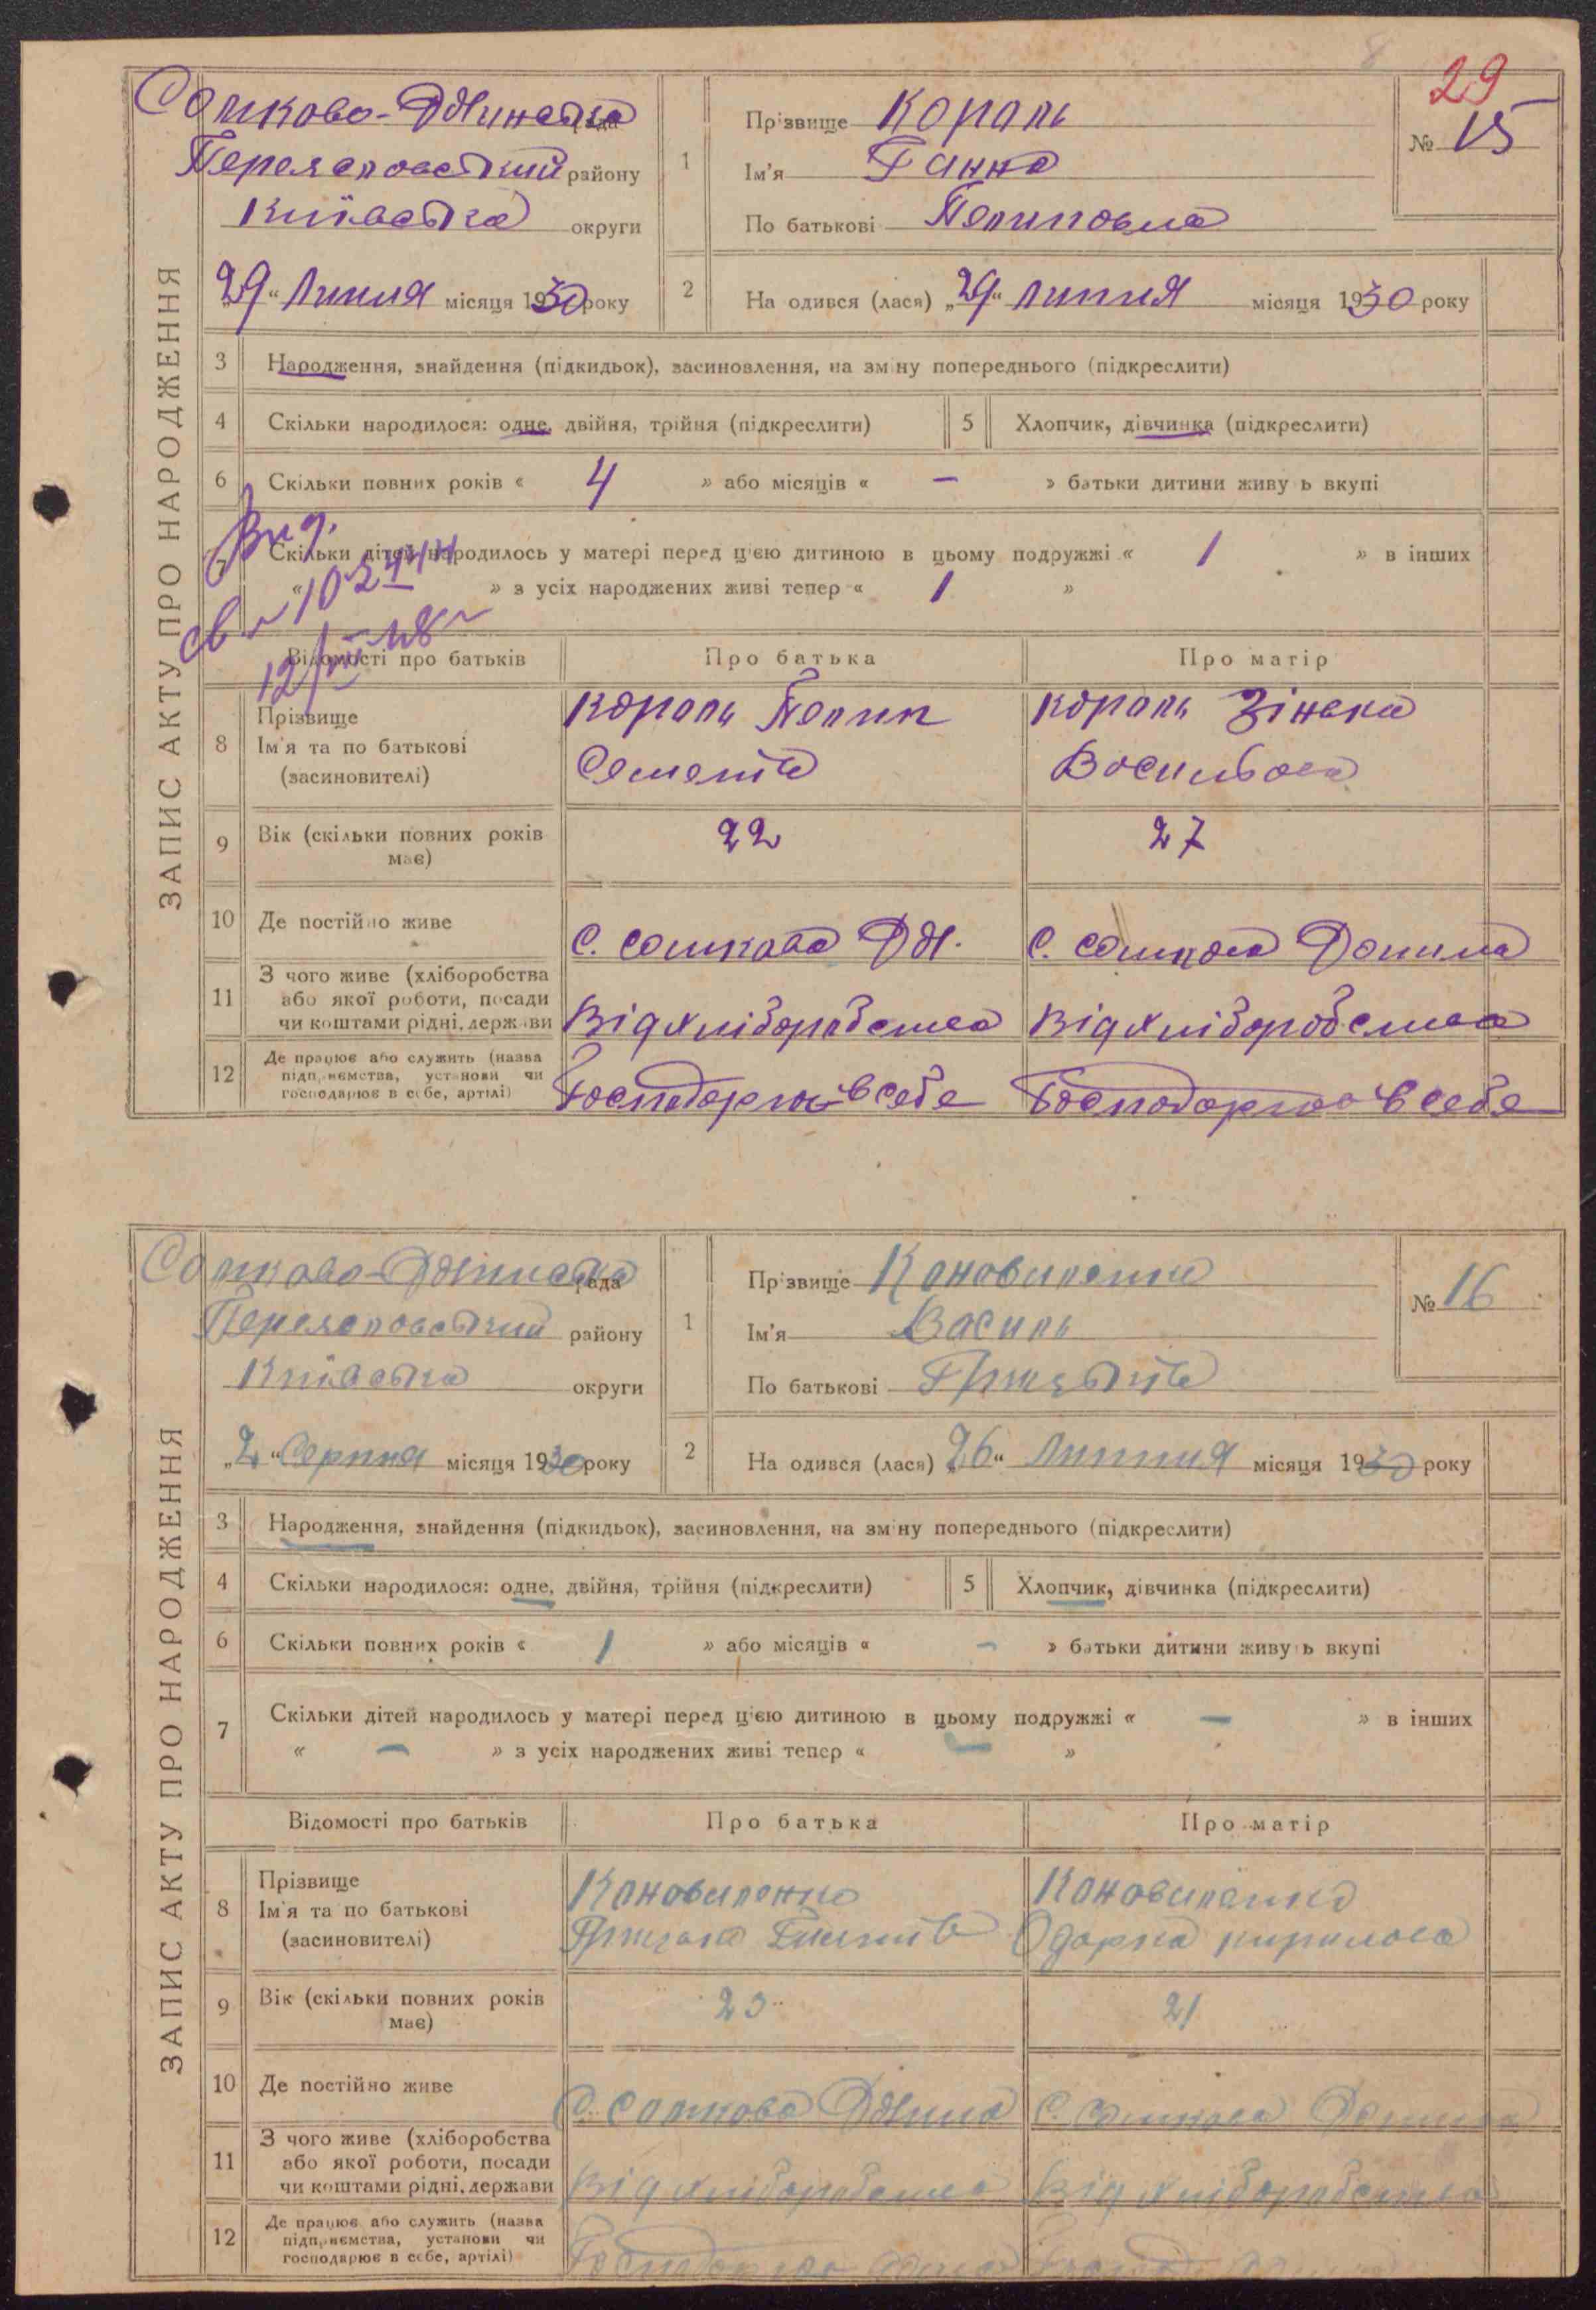 8
29
ЗАПИС АКТУ ПРО НАРОДЖЕННЯ
Сомково-Долинська рада
Переяславський району
Київська округи
„29“ Липня місяця 1930 року
1
Прізвище Король
Ім'я Ганна
По батькові Пилиповна
№ 15
2 На одився (лася) „29“ липня місяця 1930 року
3 Народження, знайдення (підкидьок), засиновлення, на зміну попереднього (підкреслити)
4 Скільки народилося: одне, двійня, трійня (підкреслити)
5 Хлопчик, дівчинка (підкреслити)
6 Скільки повних років « 4 » або місяців « – » батьки дитини живу ь вкупі
7 Скільки дітей народилось у матері перед цією дитиною в цьому подружжі « 1 » в інших
« » з усіх народжених живі тепер « 1 »
Вид.
св
12/VII 48 г
Відомості про батьків Про батька Про матір
8 Прізвище
Ім'я та по батькові
(засиновителі)
Король Пилип
Семенів
Король Зінька
Васильовa
9 Вік (скільки повних років має)
22
27
10 Де постійно живе
С. Сомкова Дол.
С. Сомкова Долина
11 З чого живе (хліборобства
або якої роботи, посади
чи коштами рідні, держави
Від хліборобства
Від хліборобства
12 Де працює або служить (назва
підприємства, установи чи
господарює в себе, артілі)
Господарює в себе
Господарює в себе
ЗАПИС АКТУ ПРО НАРОДЖЕННЯ
Сомково-Долинська рада
Переяславський району
Київська округи
„2“ Серпня місяця 1930 року
1
Прізвище Коноваленко
Ім'я Василь
По батькові Грицьків
№ 16
2 На одився (лася) „26“ Липня місяця 1930 року
3 Народження, знайдення (підкидьок), засиновлення, на зміну попереднього (підкреслити)
4 Скільки народилося: одне, двійня, трійня (підкреслити)
5 Хлопчик, дівчинка (підкреслити)
6 Скільки повних років « 1 » або місяців « – » батьки дитини живу ь вкупі
7 Скільки дітей народилось у матері перед цією дитиною в цьому подружжі « – » в інших
« – » з усіх народжених живі тепер « – »
Відомості про батьків Про батька Про матір
8 Прізвище
Ім'я та по батькові
(засиновителі)
Коноваленко
Грицько
Коноваленко
Одарка Кирилова
9 Вік (скільки повних років має)
23
21
10 Де постійно живе
С. Сомкова Долина
С. Сомкова Долина
11 З чого живе (хліборобства
або якої роботи, посади
чи коштами рідні, держави
Від хліборобства
Від хліборобства
12 Де працює або служить (назва
підприємства, установи чи
господарює в себе, артілі)
Господарює